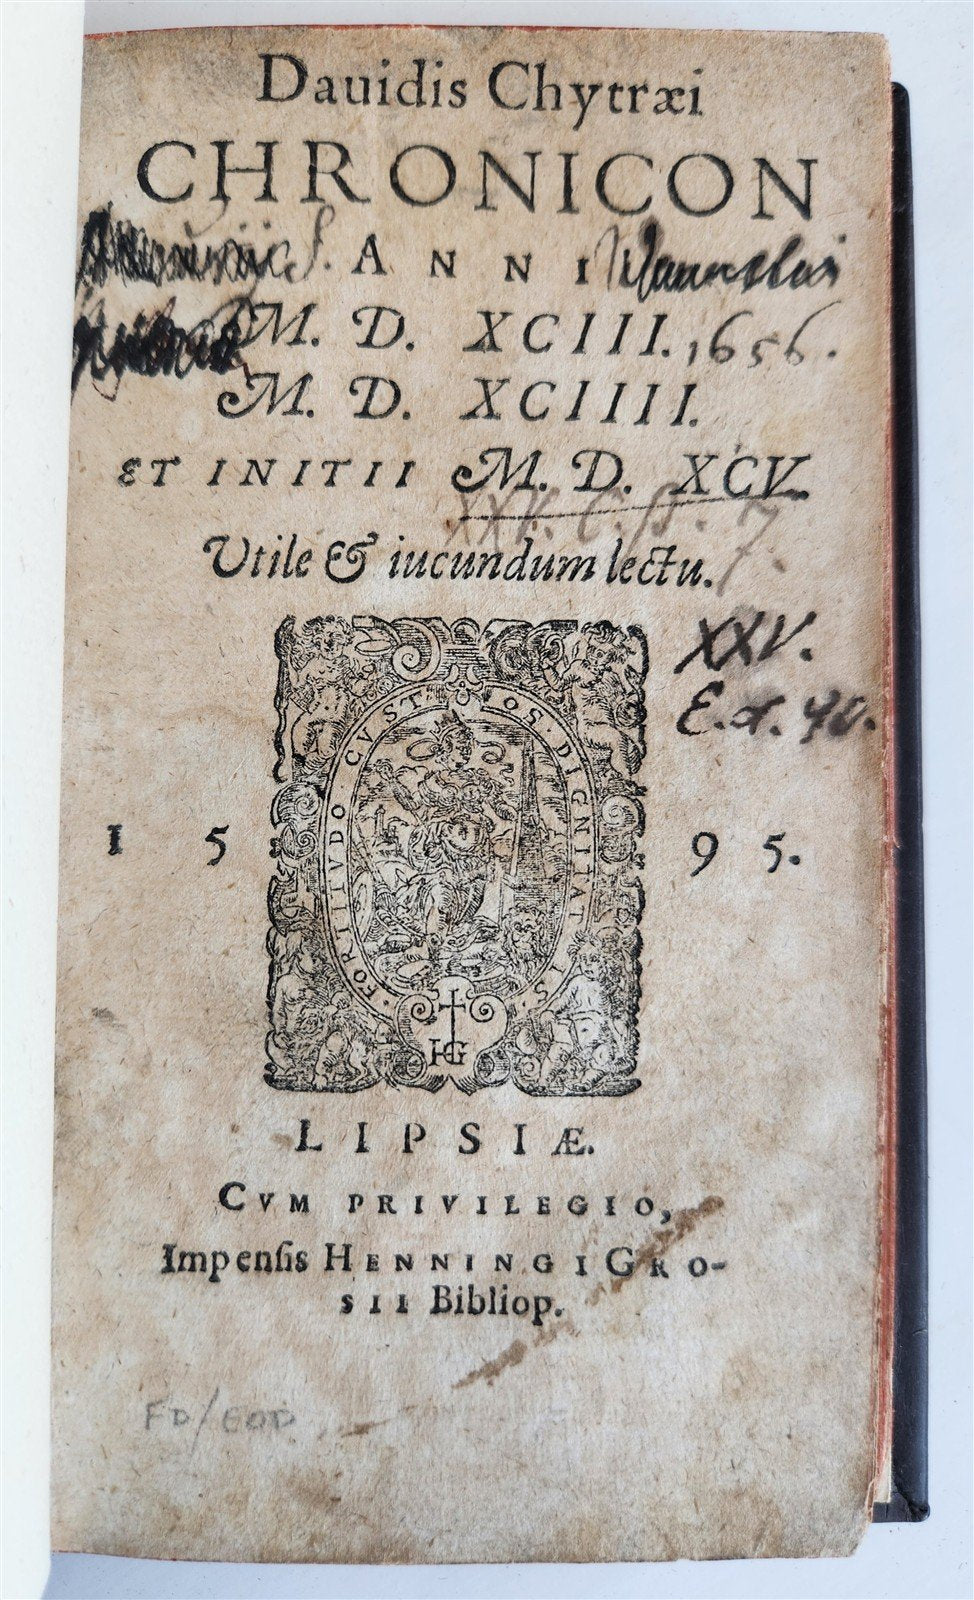 Dauidis Chytræi
CHRONICON
ANNI
M. D. XCIII. 1656.
M. D. XCIIII.
ET INITII M. D. XCV.
XXV.
Vtile & iucundum lectu.
XXV.
FORTITVDO CVSTOS DIGNITATIS
1595.
HG
LIPSIÆ.
CVM PRIVILEGIO,
Impensis HENNINGI GRO-
SII Bibliop.
FD/EOD